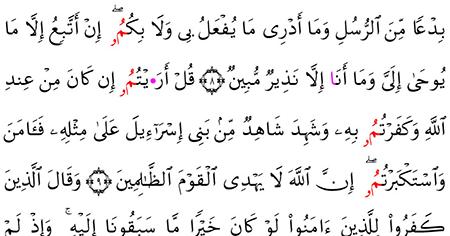 بِدْعًا مِّنَ ٱلرُّسُلِ وَمَا أَدْرِى مَا يُفْعَلُ بِى وَلَا بِكُمُۥ ۖ إِنْ أَتَّبِعُ إِلَّا مَا
يُوحَىٰ إِلَىَّ وَمَا أَنَا إِلَّا نَذِيرٌ مُّبِينٌ ﴿٨﴾ قُلْ أَرَ•يْتُمُۥ إِن كَانَ مِنْ عِندِ
ٱللَّهِ وَكَفَرْتُمُۥ بِهِۦ وَشَهِدَ شَاهِدٌ مِّنۢ بَنِى إِسْرَٰٓءِيلَ عَلَىٰ مِثْلِهِۦ فَـَٔامَنَ
وَٱسْتَكْبَرْتُمُۥ ۖ إِنَّ ٱللَّهَ لَا يَهْدِى ٱلْقَوْمَ ٱلظَّـٰلِمِينَ ﴿٩﴾ وَقَالَ ٱلَّذِينَ
كَفَرُوا۟ لِلَّذِينَ ءَامَنُوا۟ لَوْ كَانَ خَيْرًا مَّا سَبَقُونَا إِلَيْهِ ۚ وَإِذْ لَمْ